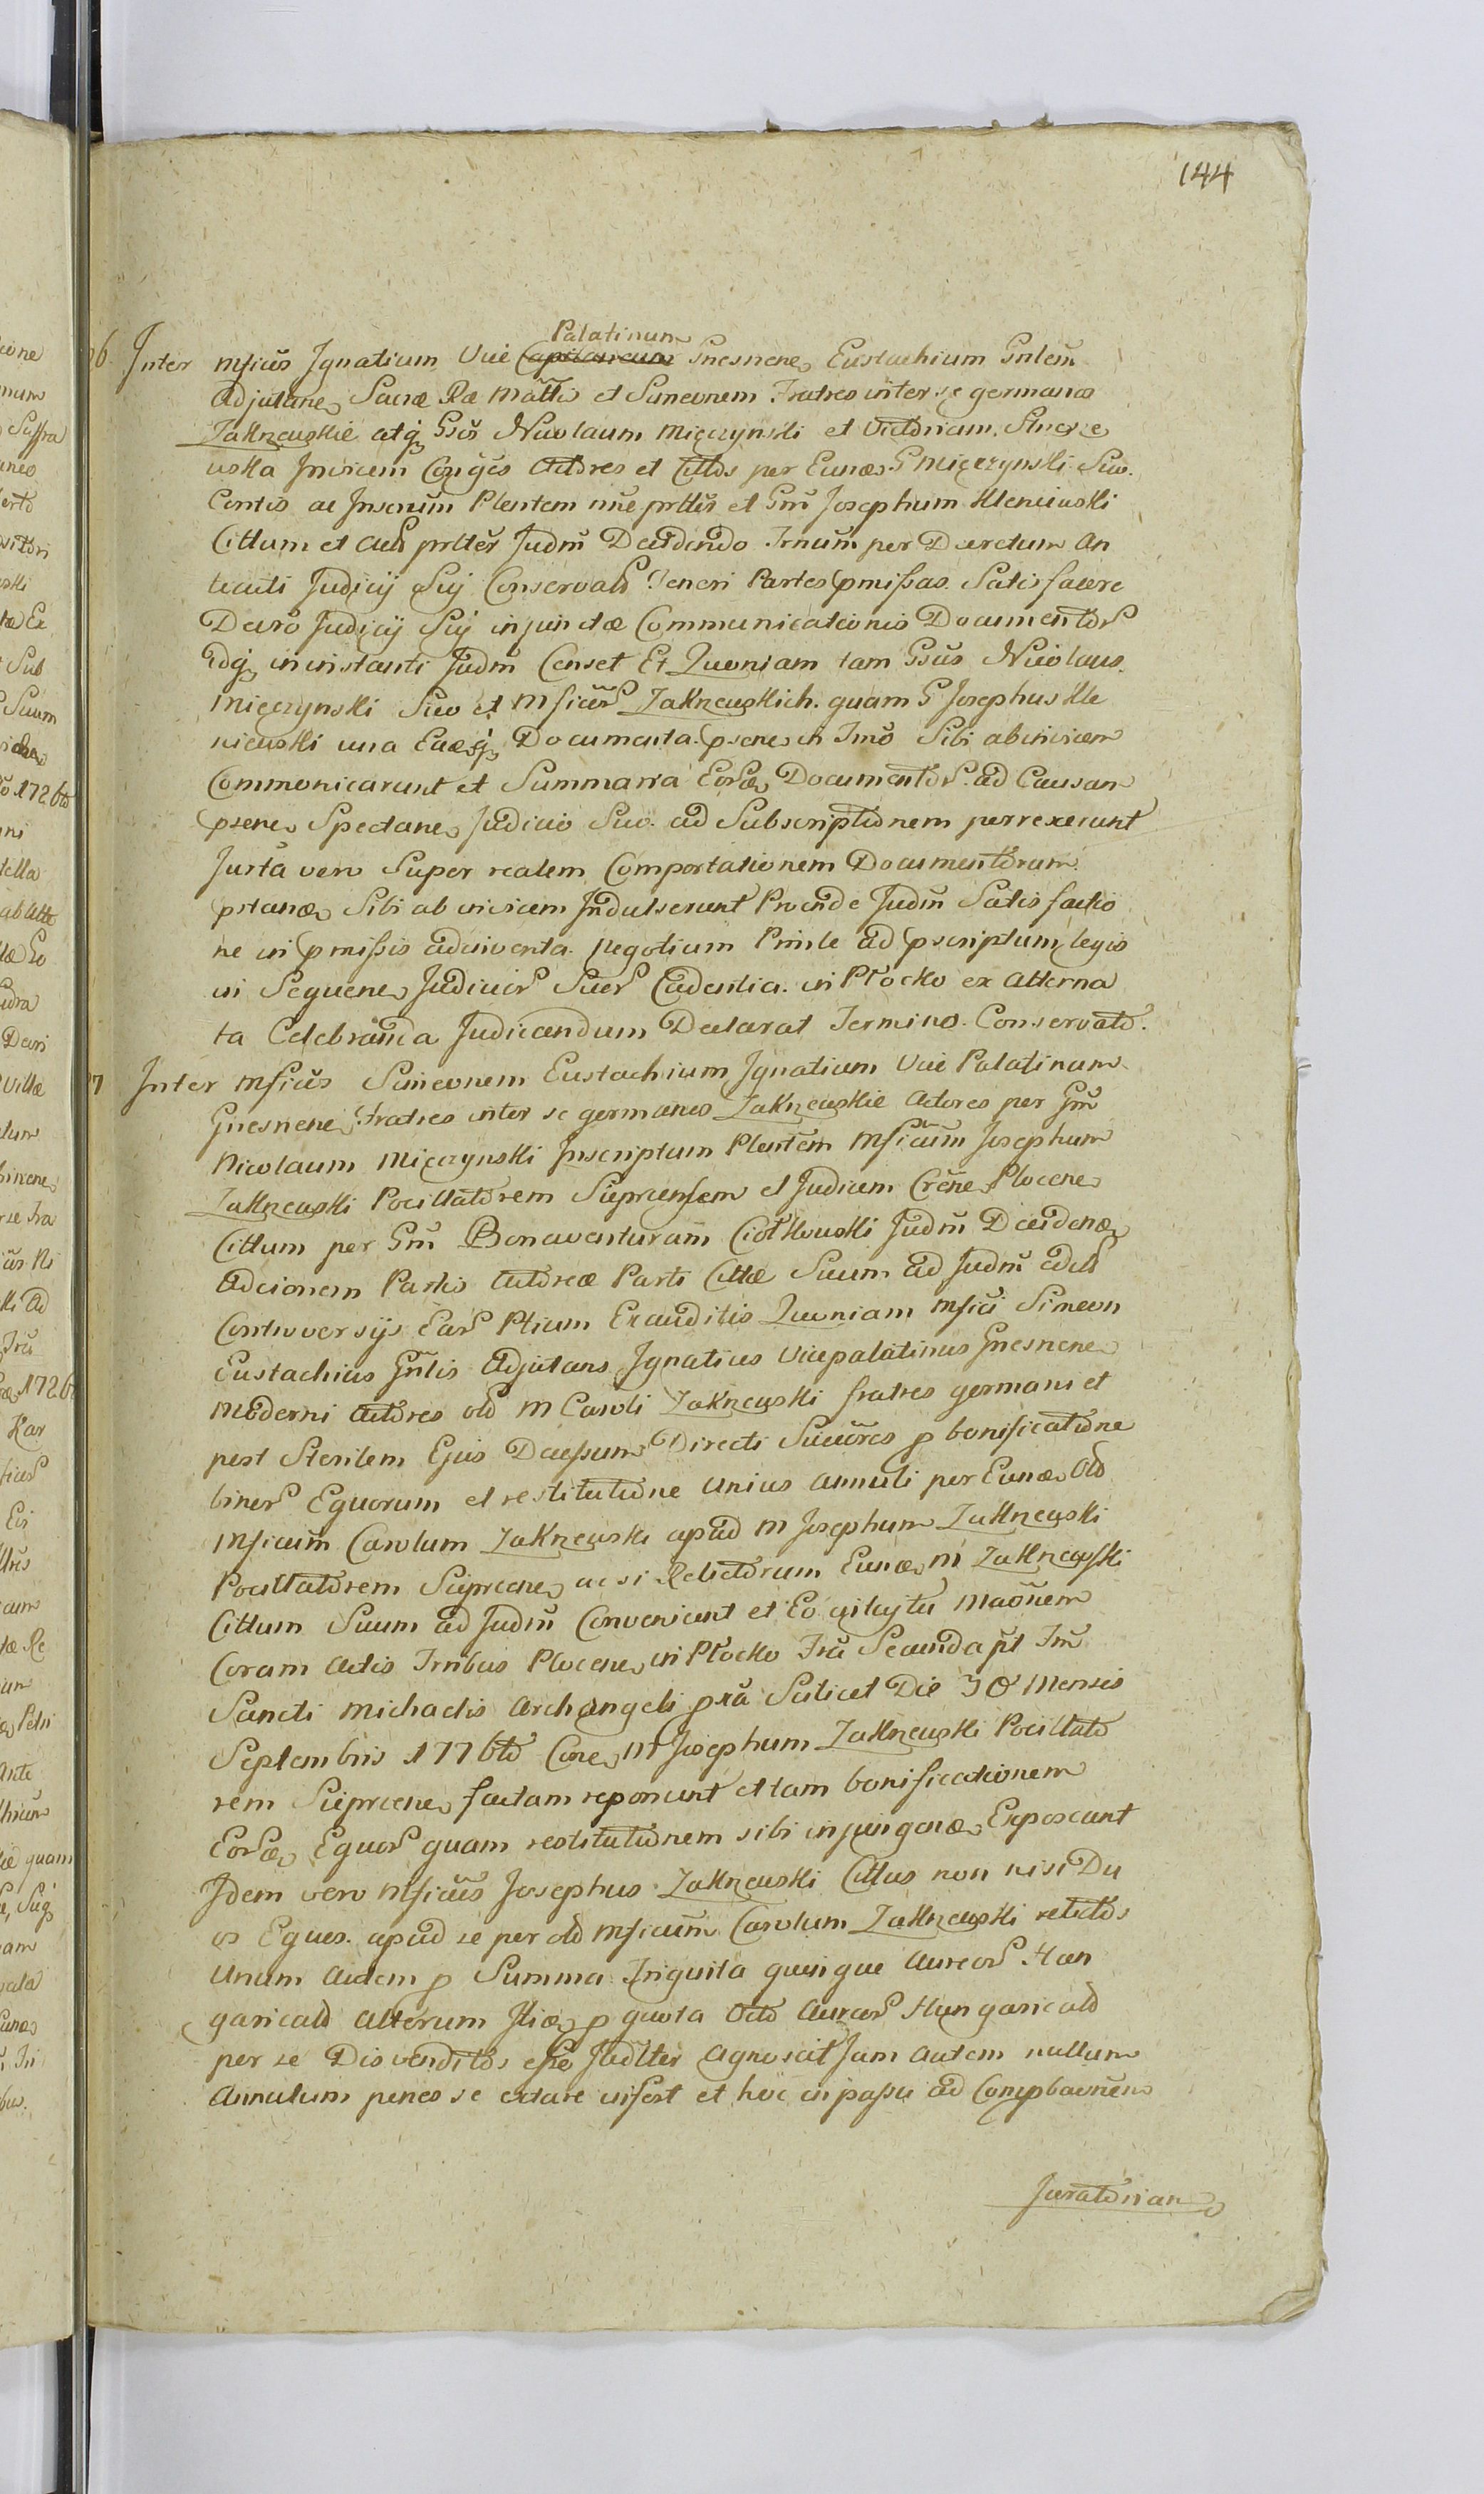 144
Palatinum
6. Inter Mficũs Ignatium Vice Capitaneum Gnesnene, Eustachium Gnlem̃
Adjutane, Sacræ Ræ Mattis et Simeonem Fratres inter se germanos
Zakrzewskie atq̨ Gsos Nicolaum Mięczynski et Victoriam
uska Invicem Conjges Actores et Cittos per Eunæ, G Mięczynski Suo.
Contis ac Inscrium Plentem nõe prttis et Gm̃ Josephum Kleniewski
Cittum et Act prltẽr Judm̃ Decidendo Trnum̃ per Decretum An
tecuti Judicij Sui Conservatt Teneri Partes p̱missas. Satisfacere
Decro Judicij Sui injunctæ Communicationis Documentor
Idq̨ in instanti Judm̃ Censet Et Quoniam tam Gsus Nicolaus.
Mięczynski Suo et Mficor̃ Zakrzewskich. quam G Josephus Kle
niewski una Eaq̨ Documenta p̱sene, in Trno Sibi abinvicem
Commonicarunt et Summaria Eorũ, Documentor. ad Causam
p̱sene, Spectane, Judicio Suo. ad Subscriptionem perrexerunt
Jurta vero Super realem Comportationem Documentorum.
pstanæ, Sibi ab invicem Indulserunt Proinde Judm̃ Satisfactio
ne in p̱missis adinventa. Negotium Pninle ad p̱scriptum legis
in Sequene, Judicior Suor Cadentia. in Płocko ex Alterna
ta Celebranda Judicandum Declarat Termino. Conservato.
7 Inter Mficũs Simeonem Eustachium Ignatium Vice Palatinum
Gnesnene, Fratres inter se germanos Zakrzewskie Actores per Gm̃
Nicolaum Mięczynski Inscriptum Plentem̃ Mficum̃ Josephum
Zakrzewski Pocillatorem Sieprcensem et Judicem Crẽne, Plocene,
Cittum per Gm̃ Bonaventuram̃ Ciołkowski Judm̃ Decidenæ,
Adcionem Partis Actoreæ Parti Cittæ Suum ad Judm̃ edict
Controversijs Ear Ptium Exauditis Quoniam Mfici Simeon
Eustachius Gnlis Adjutans Ignatius Vicepalatinus Gnesnene,
Moderni Actores old M Caroli Zakrzewski fratres germani et
post Sterilem Ejus Decessum Directi Succõres p̱ bonificatione
binor Equorum et restitutione unius annuli per Eunæ, Old
Mficum̃ Carolum Zakrzewski apud M Josephum Zakrzewski
Pocillatorem Sieprcene, ac si Relictorum Eunæ, M Zakrzewski
Cittum Suum ad Judm̃ Conveniunt et Eo Maõnem
Coram Actis Trnbus Plocene, in Płocko Fra Secunda pt Fm̃
Sancti Michaelis Archangeli p̱xa Scilicet Die 30 Mensis
Septembris 1776to Cone, M Josephum Zakrzewski Pocillato
rem Sieprcene, factam reponunt et tam bonificationem
Eorũ, Equor quam restitutionem sibi injungenæ, Exposcunt
Idem vero Mficus Josephus Zakrzewski Cittus non nisi Du
os Equos. apud se per old Mficum̃ Carolum Zakrzewski relictos
Unum autem p̱ Summa Triginta quinque Aureor Hun
garicald Alterum Itiæ, p̱ quota Octo Aureor Hungaricald
per se Disvenditos esse Judlter Agnoscit Jam autem nullum
Annulum penes se extare infert et hoc in passu ad Compbaõnem
Juratoriam